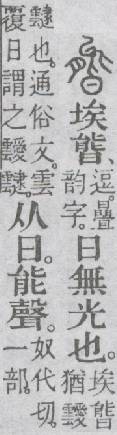 埃、
逗。曡
韵字。
日無光也。
埃
猶靉
靆也。通俗文。雲
覆日謂之靉靆
从日。能聲。
奴代切。
一部。